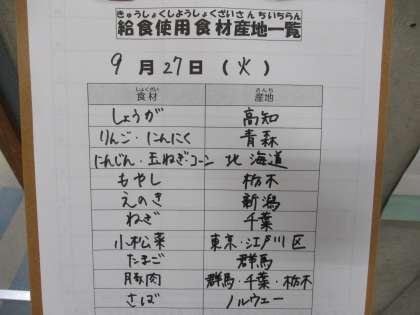 きゅうしょくしようしょくざいさんちいちらん
給食使用食材産地一覧
9月27日(火)
しょくざい さんち
食材 産地
しょうが 高知
りんご・にんにく 青森
にんじん・玉ねぎ・コーン 北海道
もやし 栃木
えのき 新潟
ねぎ 千葉
小松菜 東京・江戸川区
たまご 群馬
豚肉 群馬・千葉・栃木
さば ノルウェー